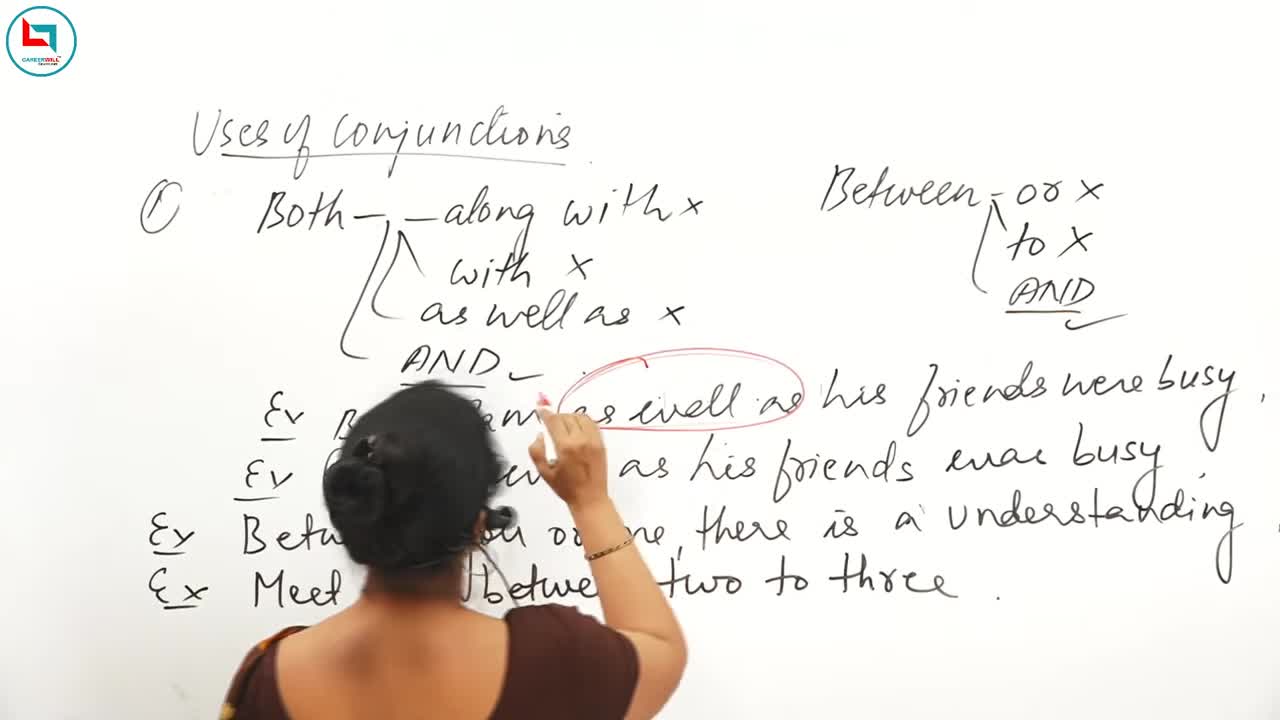 CAREERWILL
Uses of Conjunctions
① Both — — along with x
with x
as well as x
AND ✓
Between - or x
to x
AND ✓
Ex as well as his friends were busy.
Ex as his friends was busy.
Ex or me, there is a understanding.
Ex Meet between two to three.